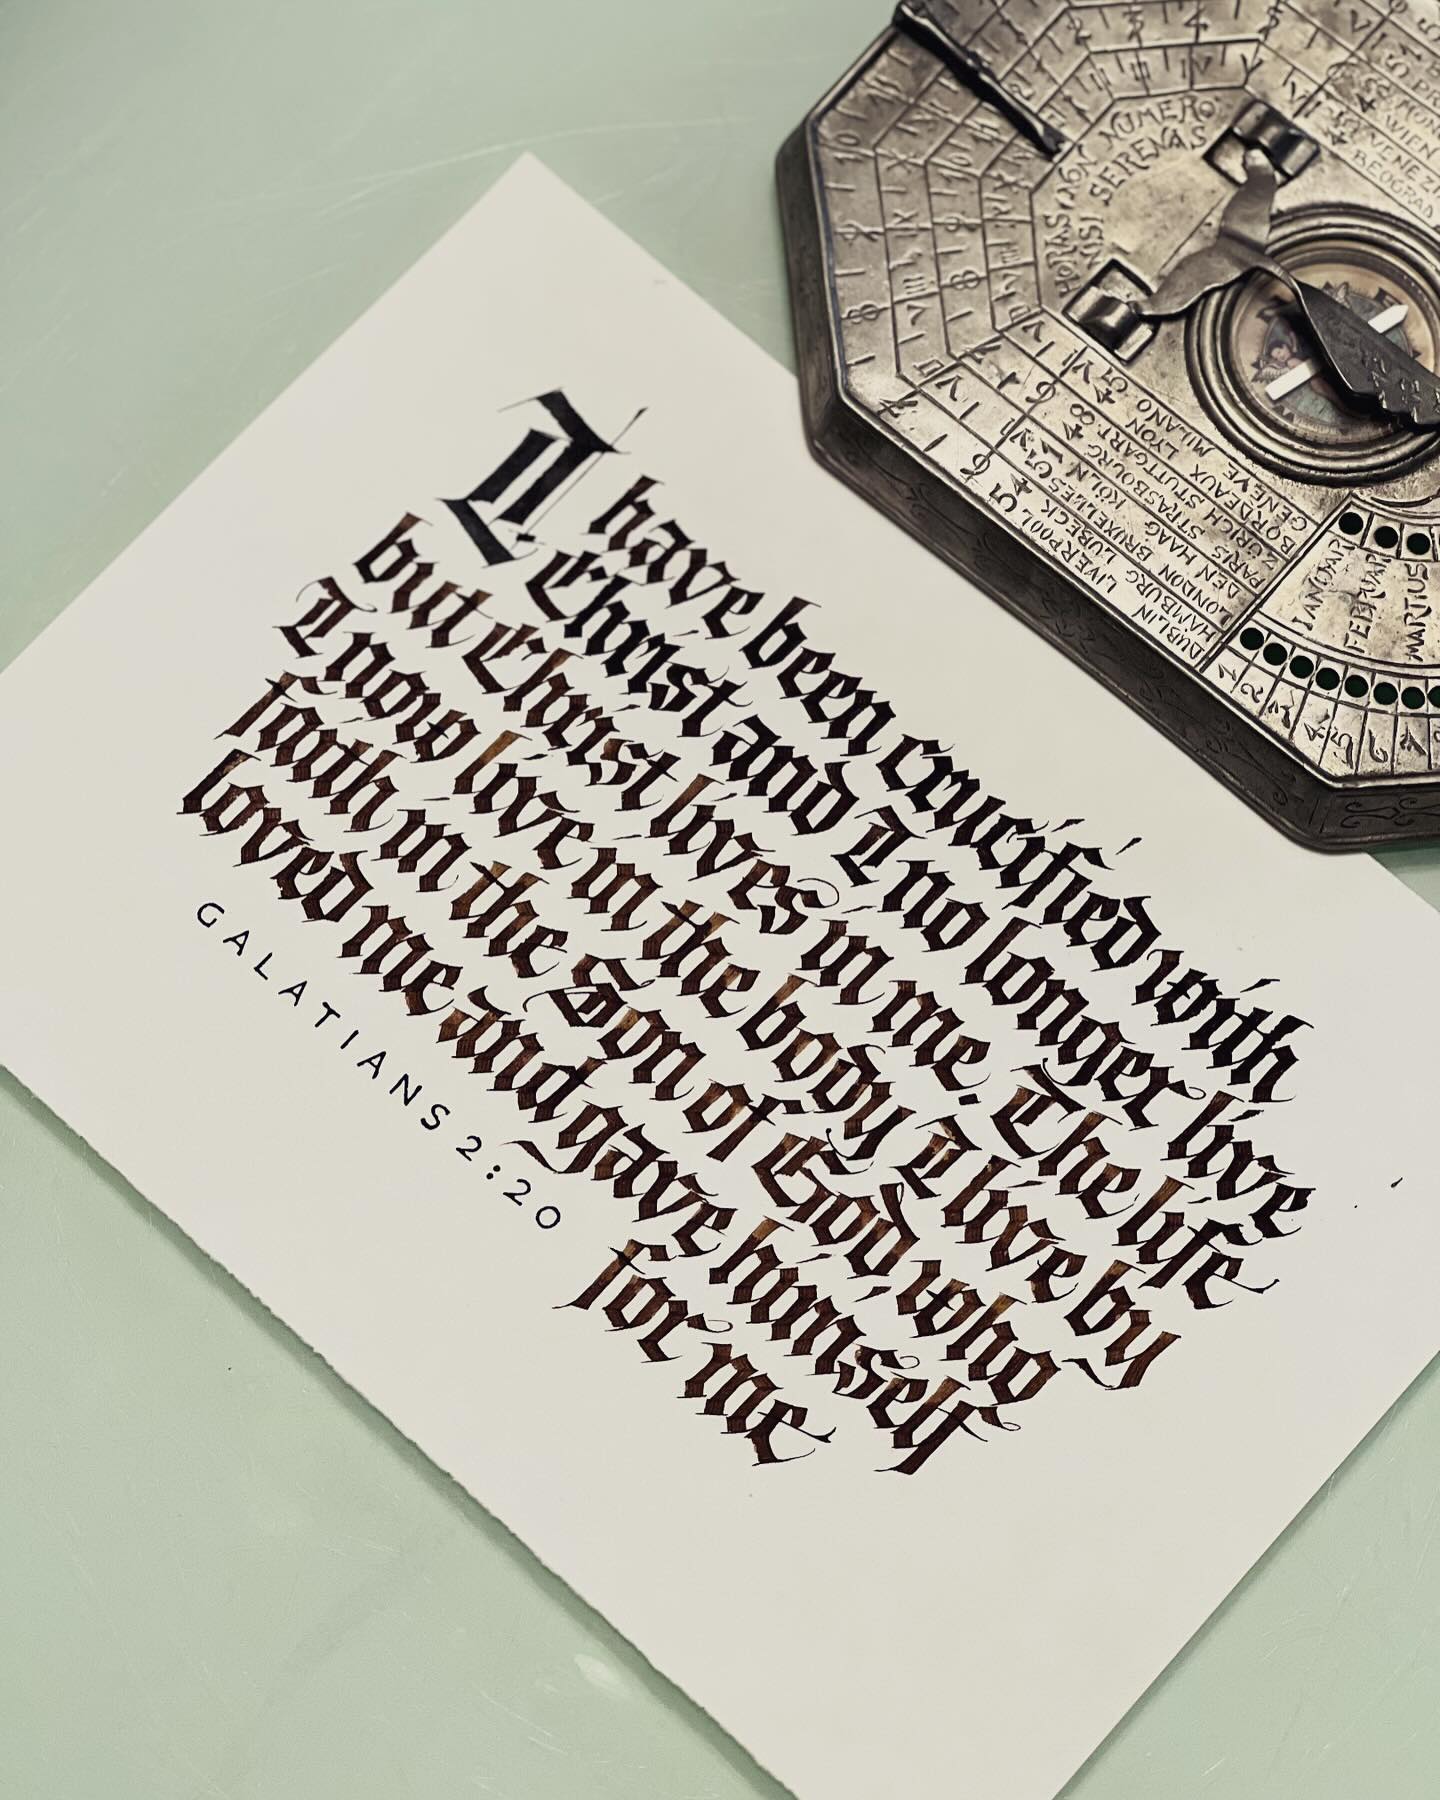 I have been crucified with
Christ and I no longer live
but Christ lives in me. The life
I now live in the body I live by
faith in the Son of God, who
loved me and gave himself
for me
GALATIANS 2:20
HORAS NON NUMERO
NISI SERENAS
WIEN
VENEZIA
BEOGRAD
GENEVE MILANO
BORDEAUX LYON
ZÜRICH STUTTGART 48
PARIS STRASBOURG
LONDON KÖLN
DEN HAAG BRUXELLES
HAMBURG LÜBECK
DUBLIN LIVERPOOL
JANUAR
FEBRUAR
MARTIUS
1 2 3 4 5 6 7